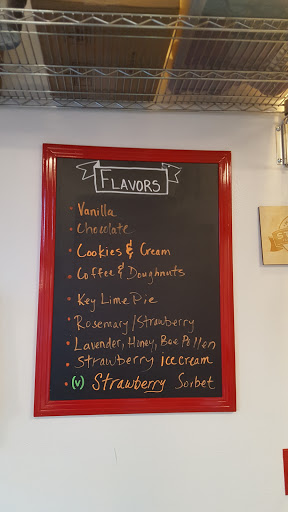 FLAVORS
• Vanilla
• Chocolate
• Cookies & Cream
• Coffee & Doughnuts
• Key Lime Pie
• Rosemary/Strawberry
• Lavender, Honey, Bee Pollen
• Strawberry ice cream
• (V) Strawberry Sorbet